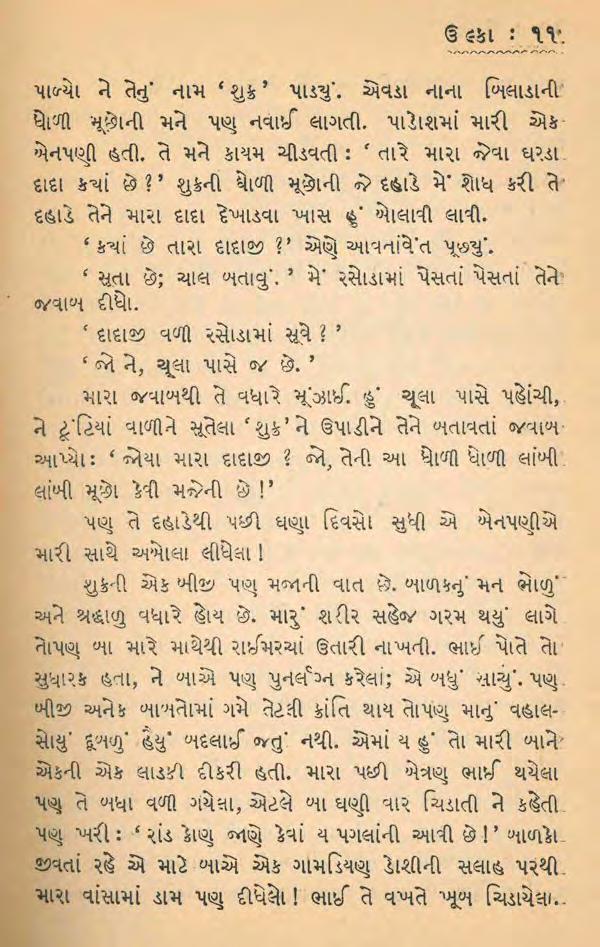 ઉલ્કા : ૧૧
પાળ્યો ને તેનું નામ ‘ શુક્ર ’ પાડ્યું. એવડા નાના બિલાડાની
ધોળી મૂછોની મને પણ નવાઈ લાગતી. પાડોશમાં મારી એક
બેનપણી હતી. તે મને કાયમ ચીડવતી : ‘ તારે મારા જેવા ઘરડા
દાદા ક્યાં છે ?’ શુક્રની ધોળી મૂછોની જે દહાડે મેં શોધ કરી તે
દહાડે તેને મારા દાદા દેખાડવા ખાસ હું બોલાવી લાવી.
‘ ક્યાં છે તારા દાદાજી ?’ એણે આવતાંવેંત પૂછ્યું.
‘ સૂતા છે; ચાલ બતાવું. ’ મેં રસોડામાં પેસતાં પેસતાં તેને
જવાબ દીધો.
‘ દાદાજી વળી રસોડામાં સૂવે ? ’
‘ જો ને, ચૂલા પાસે જ છે. ’
મારા જવાબથી તે વધારે મૂંઝાઈ. હું ચૂલા પાસે પહોંચી,
ને ટૂંટિયાં વાળીને સૂતેલા ‘ શુક્ર ’ને ઉપાડીને તેને બતાવતાં જવાબ
આપ્યો : ‘ જોયા મારા દાદાજી ? જો, તેની આ ધોળી ધોળી લાંબી
લાંબી મૂછો કેવી મજેની છે !’
પણ તે દહાડેથી પછી ઘણા દિવસો સુધી એ બેનપણીએ
મારી સાથે અબોલા લીધેલા !
શુક્રની એક બીજી પણ મજાની વાત છે. બાળકનું મન ભોળું
અને શ્રદ્ધાળુ વધારે હોય છે. મારું શરીર સહેજ ગરમ થયું લાગે
તોપણ બા મારે માથેથી રાઈમરચાં ઉતારી નાખતી. ભાઈ પોતે તો
સુધારક હતા, ને બાએ પણ પુનર્લગ્ન કરેલાં; એ બધું સાચું. પણ
બીજી અનેક બાબતોમાં ગમે તેટલી ક્રાંતિ થાય તોપણ માનું વહાલ-
સોયું દૂબળું હૈયું બદલાઈ જતું નથી. એમાં ય હું તો મારી બાને
એકની એક લાડકી દીકરી હતી. મારા પછી બેત્રણ ભાઈ થયેલા
પણ તે બધા વળી ગયેલા, એટલે બા ઘણી વાર ચિડાતી ને કહેતી
પણ ખરી : ‘ રાંડ કોણ જાણે કેવાં ય પગલાંની આવી છે !’ બાળકો
જીવતાં રહે એ માટે બાએ એક ગામડિયણ ડોશીની સલાહ પરથી
મારા વાંસામાં ડામ પણ દીધેલો ! ભાઈ તે વખતે ખૂબ ચિડાયેલા..